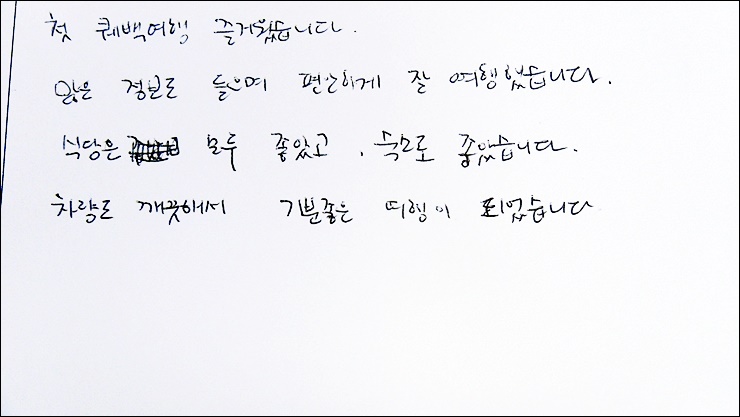 첫 퀘백여행 즐거웠습니다.
많은 정보도 들으며 편안하게 잘 여행했습니다.
식당은 모두 좋았고, 숙소도 좋았습니다.
차량도 깨끗해서 기분좋은 여행이 되었습니다